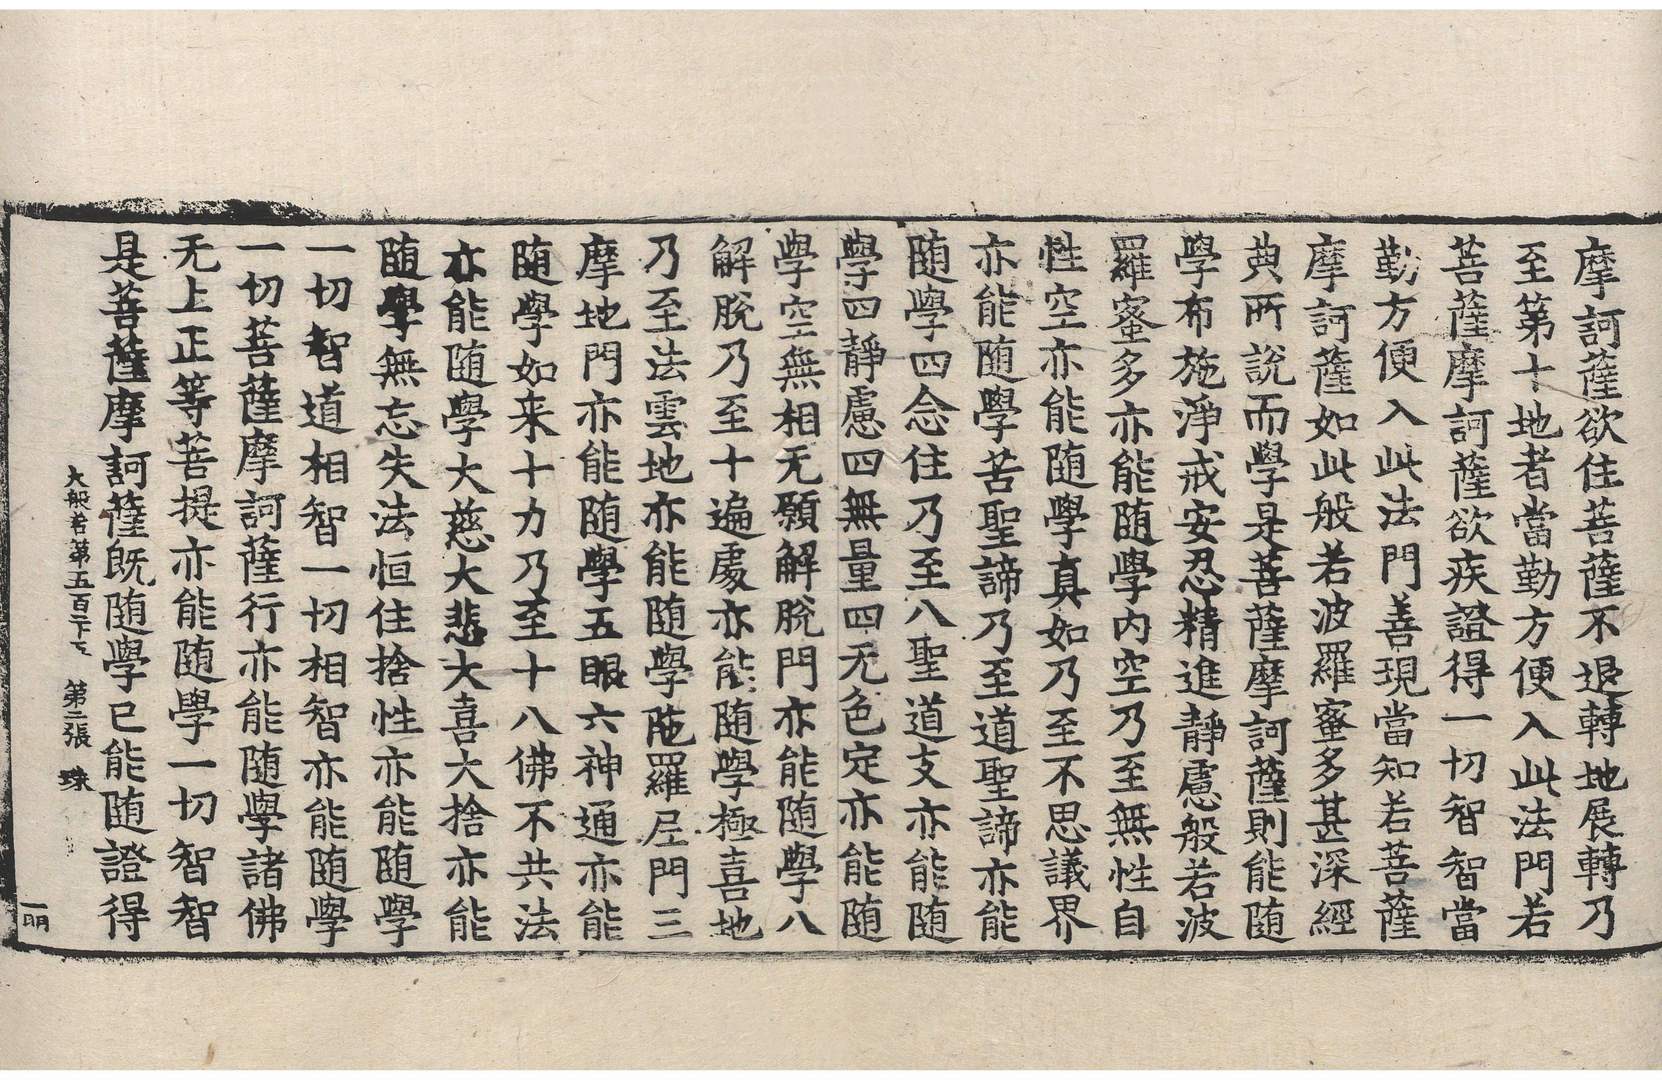 摩訶薩欲住菩薩不退轉地展轉乃
至第十地者當勤方便入此法門若
菩薩摩訶薩欲疾證得一切智智當
勤方便入此法門善現當知若菩薩
摩訶薩如此般若波羅蜜多甚深經
典所說而學是菩薩摩訶薩則能随
學布施淨戒安忍精進靜慮般若波
羅蜜多亦能随學内空乃至無性自
性空亦能随學真如乃至不思議界
亦能随學苦聖諦乃至道聖諦亦能
随學四念住乃至八聖道支亦能随
學四靜慮四無量四无色定亦能随
學空無相无願解脫門亦能随學八
解脫乃至十遍處亦能随學極喜地
乃至法雲地亦能随學陁羅尼門三
摩地門亦能随學五眼六神通亦能
随學如来十力乃至十八佛不共法
亦能随學大慈大悲大喜大捨亦能
随學無忘失法恒住捨性亦能随學
一切智道相智一切相智亦能随學
一切菩薩摩訶薩行亦能随學諸佛
无上正等菩提亦能随學一切智智
是菩薩摩訶薩既随學已能随證得
大般若第五百二十五 第二張 珠